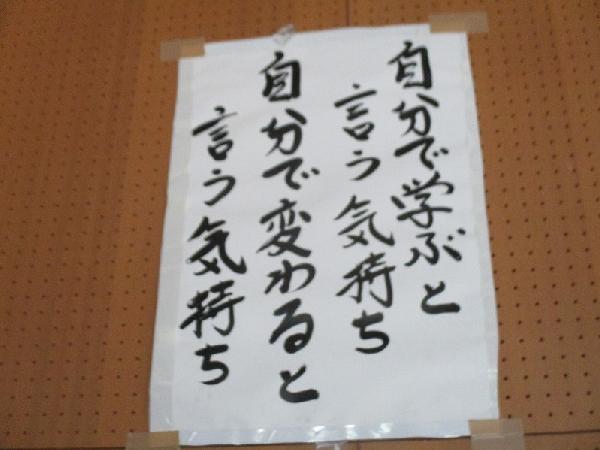 自分で学ぶと
言う気持ち
自分で変わると
言う気持ち